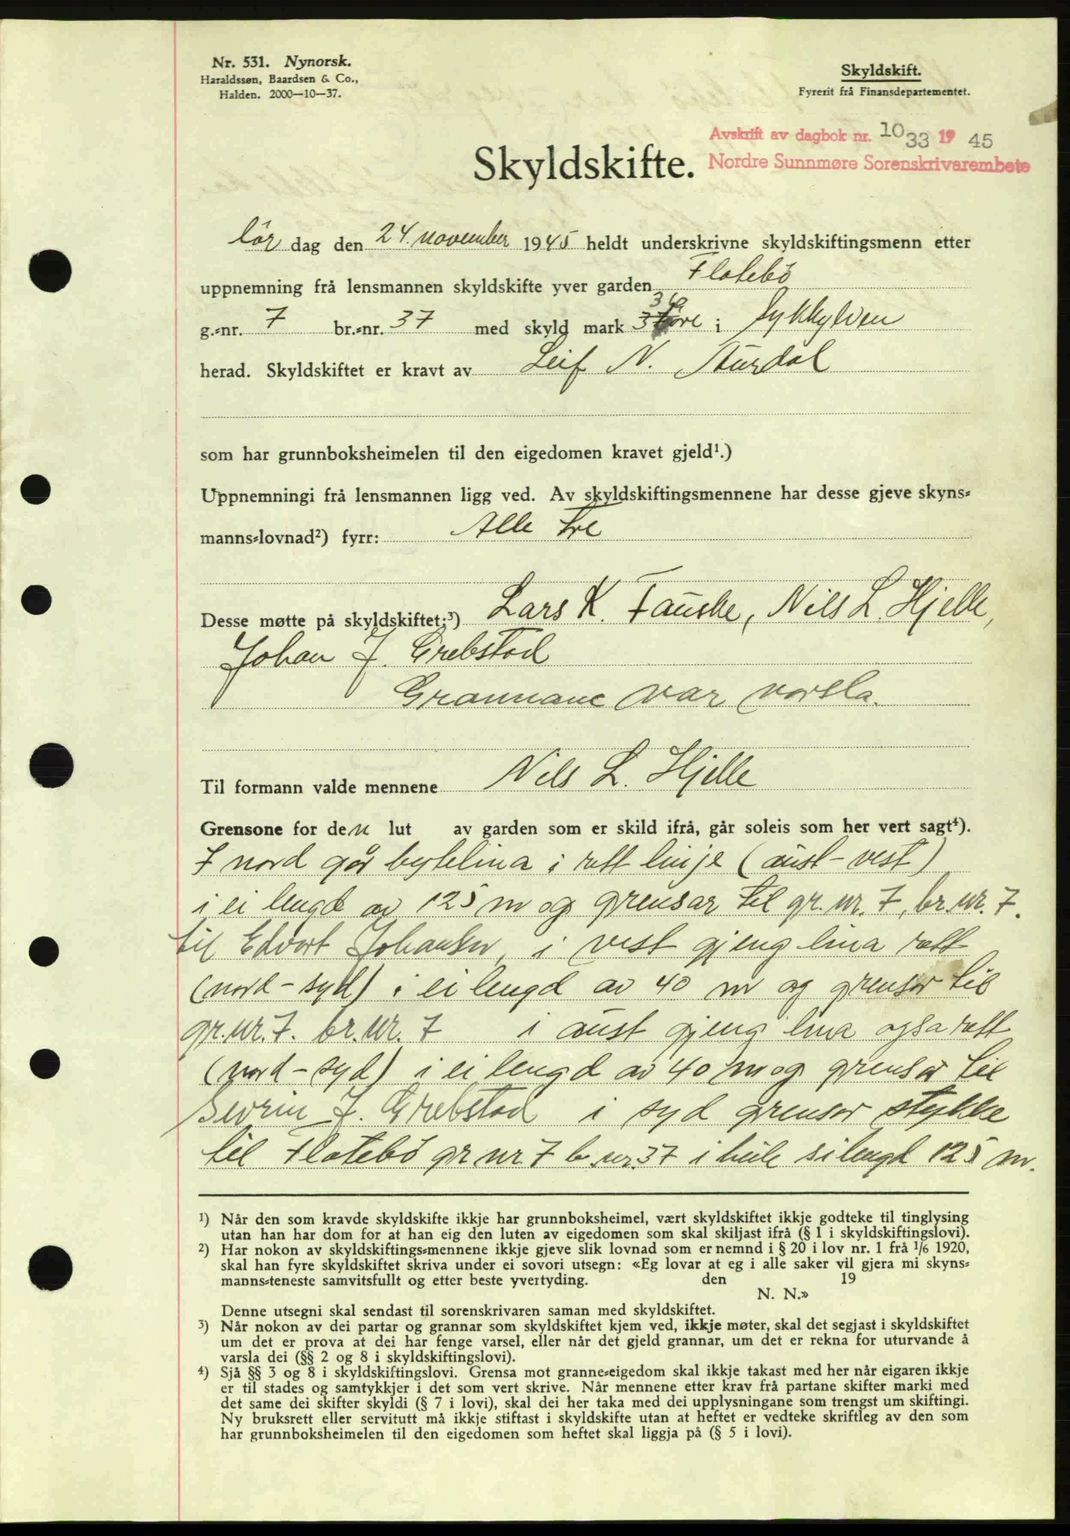 Nr. 531. Nynorsk.
Haraldssøn, Baardsen & Co.,
Halden. 2000—10—37.
Skyldskift.
Fyrerit frå Finansdepartementet.
Avskrift av dagbok nr. 1033 19 45
Nordre Sunnmøre Sorenskrivarembete
Skyldskifte.
lör dag den 24. november 1945 heldt underskrivne skyldskiftingsmenn etter
uppnemning frå lensmannen skyldskifte yver garden Flotebö
g.-nr. 7 br.-nr. 37 med skyld mark øre i Sykkylven
herad. Skyldskiftet er kravt av Leif N. Aurdal
som har grunnboksheimelen til den eigedomen kravet gjeld¹.)
Uppnemningi frå lensmannen ligg ved. Av skyldskiftingsmennene har desse gjeve skyns-
manns-lovnad²) fyrr: Alle tre
Desse møtte på skyldskiftet:³) Lars K. Fauske, Nils L. Hjelle,
Johan J. Grebstad
Grannane var varsla.
Til formann valde mennene Nils L. Hjelle
Grensone for den lut av garden som er skild ifrå, går soleis som her vert sagt⁴).
I nord går bytelina i rett linje (aust-vest)
i ei lengd av 125 m og grensar til gr. nr. 7, br. nr. 7.
til Edvart Johansen, i vest gjeng lina rett
(nord-syd) i ei lengd av 40 m og grensar til
gr. nr. 7. br. nr. 7 i aust gjeng lina også rett
(nord-syd) i ei lengd av 40 m og grensar til
Sevrin J. Grebstad i syd grensar stykke
til Flotebö gr nr 7 br. nr. 37 i heile si lengd 125 m.
¹) Når den som kravde skyldskifte ikkje har grunnboksheimel, vært skyldskiftet ikkje godteke til tinglysing
utan han har dom for at han eig den luten av eigedomen som skal skiljast ifrå (§ 1 i skyldskiftingslovi).
²) Har nokon av skyldskiftings-mennene ikkje gjeve slik lovnad som er nemnd i § 20 i lov nr. 1 frå ¹/₆ 1920,
skal han fyre skyldskiftet skriva under ei sovori utsegn: «Eg lovar at eg i alle saker vil gjera mi skyns-
manns-teneste samvitsfullt og etter beste yvertyding. den 19
N. N.»
Denne utsegni skal sendast til sorenskrivaren saman med skyldskiftet.
³) Når nokon av dei partar og grannar som skyldskiftet kjem ved, ikkje møter, skal det segjast i skyldskiftet
um det er prova at dei har fenge varsel, eller når det gjeld grannar, um det er rekna for uturvande å
varsla dei (§§ 2 og 8 i skyldskiftingslovi).
⁴) Sjå §§ 3 og 8 i skyldskiftingslovi. Grensa mot granne-eigedom skal ikkje takast med her når eigaren ikkje
er til stades og samtykkjer i det som vert skrive. Når mennene etter krav frå partane skifter marki med
det same dei skifter skyldi (§ 7 i lovi), skal dei her taka med dei upplysningane som trengst um skiftingi.
Ny bruksrett eller servitutt må ikkje stiftast i skyldskifte utan at heftet er vedteke skriftleg av den som
har grunnboksheimelen til den eigedomen som heftet skal liggja på (§ 5 i lovi).